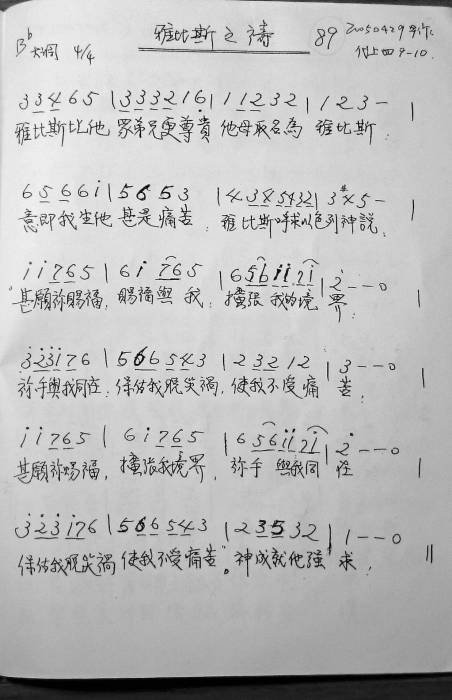 B♭大調 4/4 雅比斯之禱 89 20050429
代上四9-10.
3 3 4 6 5 | 3 3 3 2 1 6 | 1 1 2 3 2 | 1 2 3 - |
雅比斯比他 眾弟兄更尊貴 他母取名為 雅比斯:
6 5 6 6 i | 5 6 5 3 | 4 3 4 5 4 3 2 | 3 #4 5 - |
意即我生他 甚是痛苦. 雅比斯呼求以色列神說:
"i i 7 6 5 | 6 i 7 6 5 | 6 5 6 i i 2 i | 2 - - 0 |
甚願祢賜福, 賜福與 我: 擴張 我的境 界:
3 2 3 1 7 6 | 5 6 6 5 4 3 | 2 3 2 1 2 | 3 - - 0 |
祢手與我同在: 保佑我脫災禍, 使我不受痛 苦.
i i 7 6 5 | 6 i 7 6 5 | 6 5 6 i i 2 i | 2 - - 0 |
甚願祢賜福, 擴張我境界, 祢手 與我同 在
3 2 3 1 7 6 | 5 6 6 5 4 3 | 2 3 5 3 2 | 1 - - 0 ||
保佑我脫災禍 使我不受痛苦". 神成就他 求.